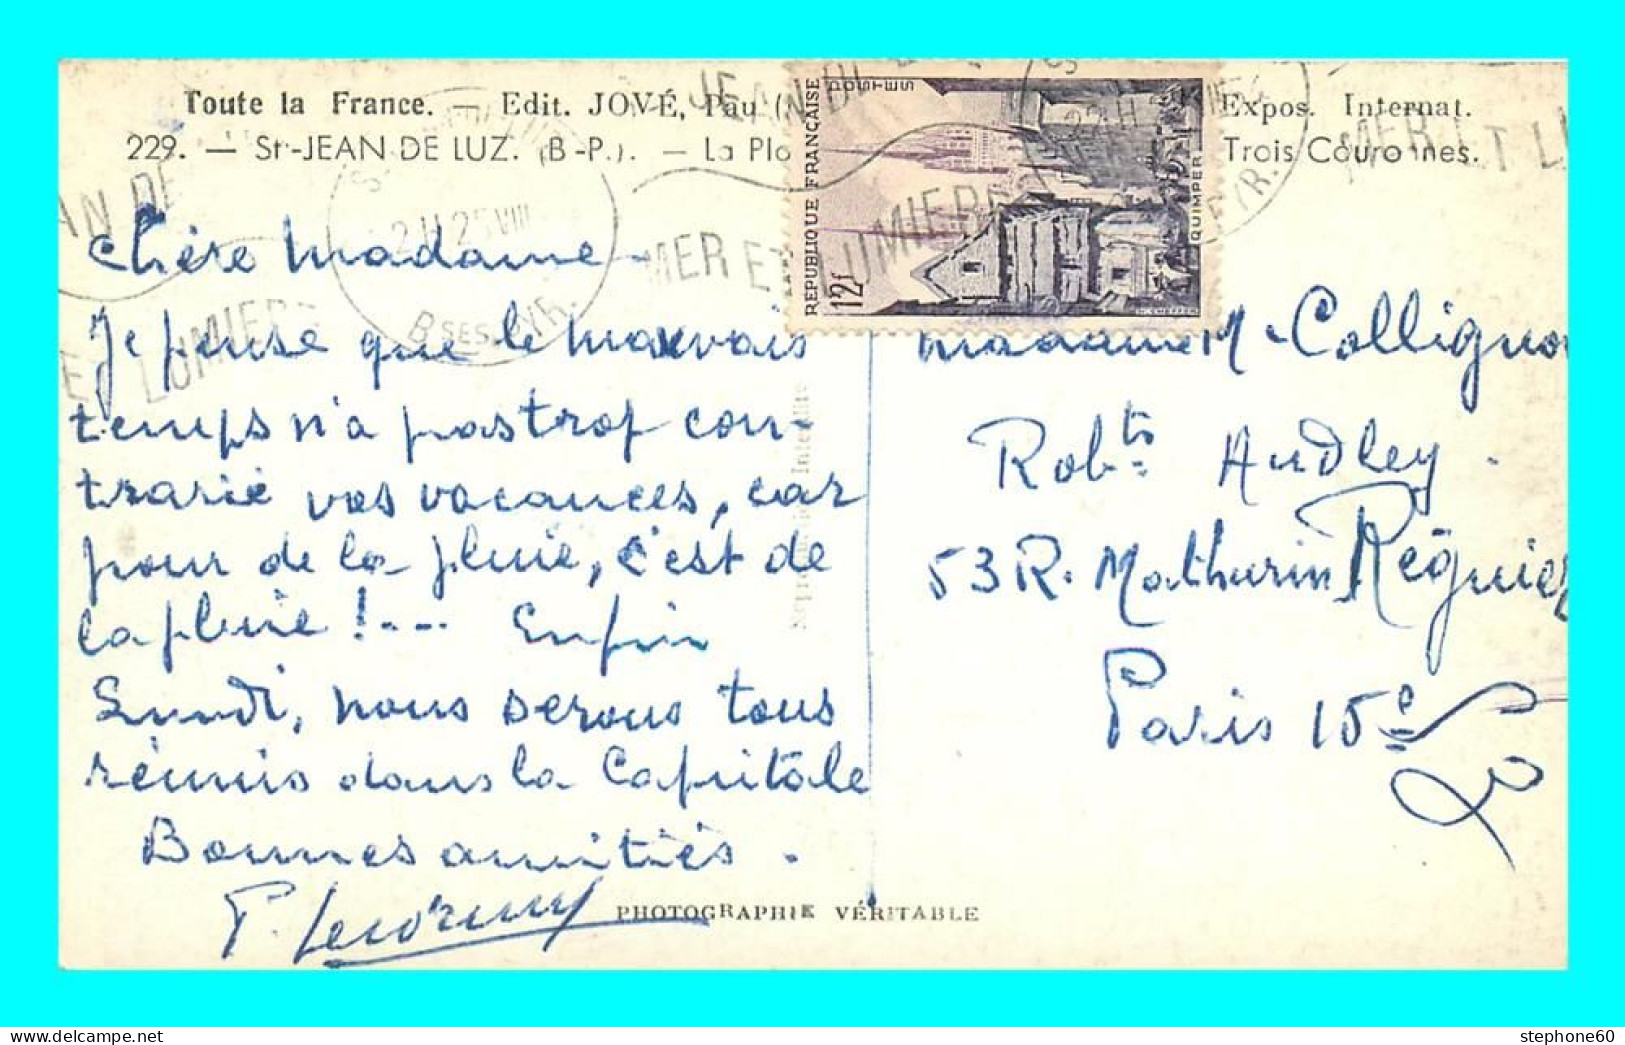 Toute la France. — Edit. JOVÉ, Pau ( Expos. Internat.
229. — St-JEAN DE LUZ. (B-P.). — La Pla Trois Couronnes.
REPUBLIQUE FRANÇAISE
POSTES
12f
QUIMPER
JEAN DE
MER ET LUMIERE
22 H
MER ET L
AN DE
ET LUMIERE
2 H 25 VIII
BSES PYR.
Chère Madame -
Je pense que le mauvais
temps n'a pas trop con-
trarié vos vacances, car
pour de la pluie, c'est de
la pluie !--- Enfin
Lundi, nous serons tous
réunis dans la Capitale
Bonnes amitiés.
Madame M. Collignon
Rob.ts Audley.
53 R. Mathurin Régnier
Paris 15e
Reproduction Interdite
PHOTOGRAPHIE VÉRITABLE
stephone60